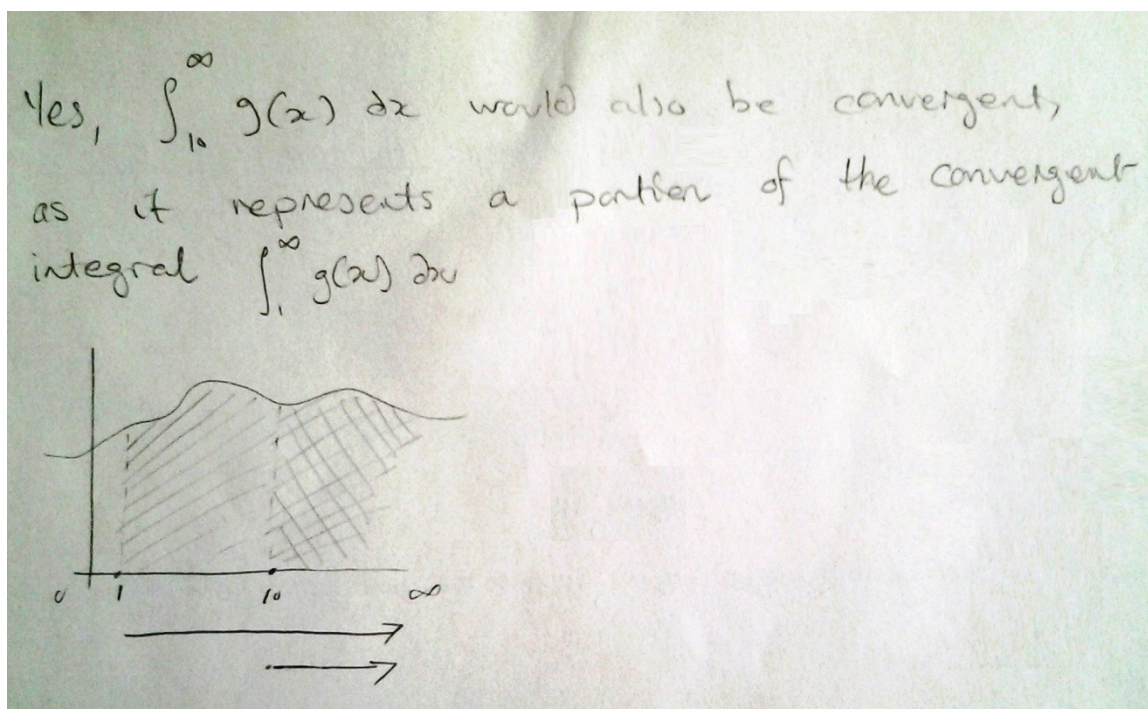 Yes, ∫₁₀^∞ g(x) dx would also be convergent,
as it represents a portion of the convergent
integral ∫₁^∞ g(x) dx
0 1 10 ∞